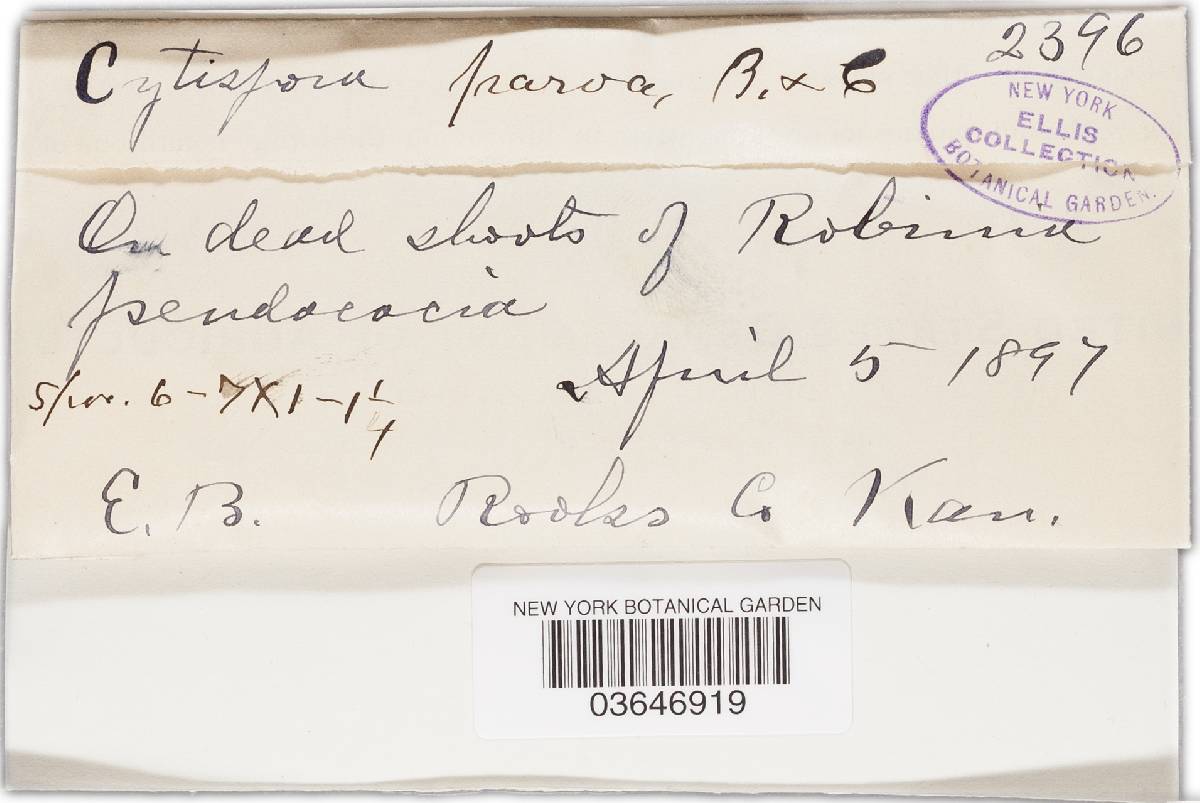 2396
Cytispora parva, B. & C
NEW YORK
ELLIS
COLLECTION
BOTANICAL GARDEN.
On dead shoots of Robinia
pseudacacia
April 5 1897
Spor. 6-7X1-1 1/4
E. B. Rooks Co Kan.
NEW YORK BOTANICAL GARDEN
03646919